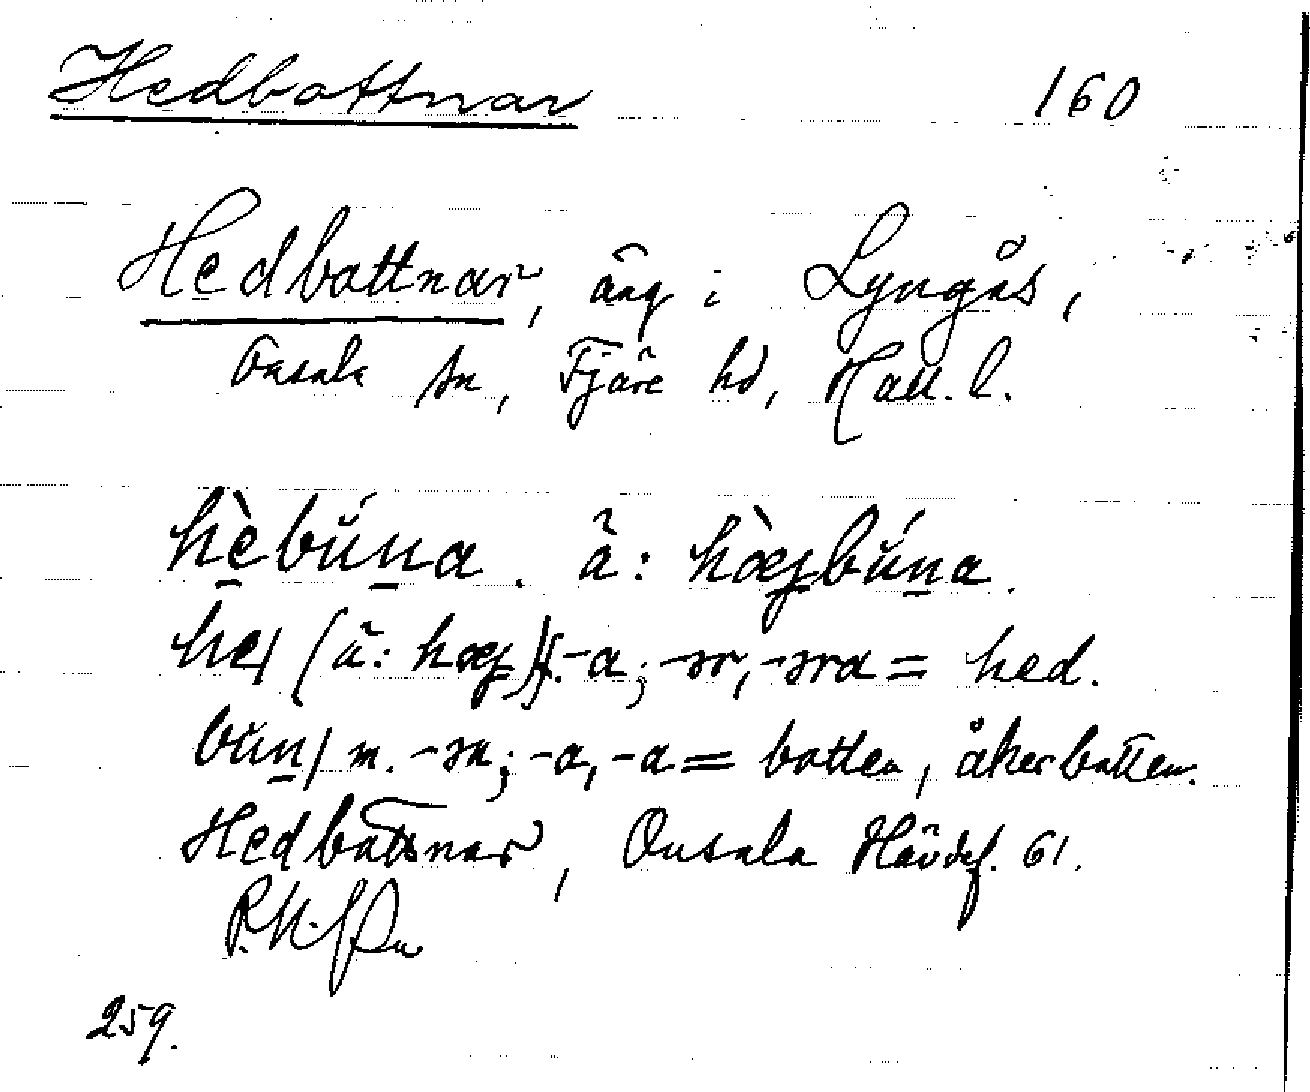 Hedbottnar 160
Hedbottnar, äng i Lyngås,
Onsala sn, Fjäre hd, Hall. l.
hèbŭ́na. ä: hæ̀bŭ́na.
he/ (ä: hæ) f. -a; -ər, -əra = hed.
bŭn/ m. -ən; -a, -a = botten, åkerbotten.
Hedbottnar, Onsala Hävdef. 61.
259.